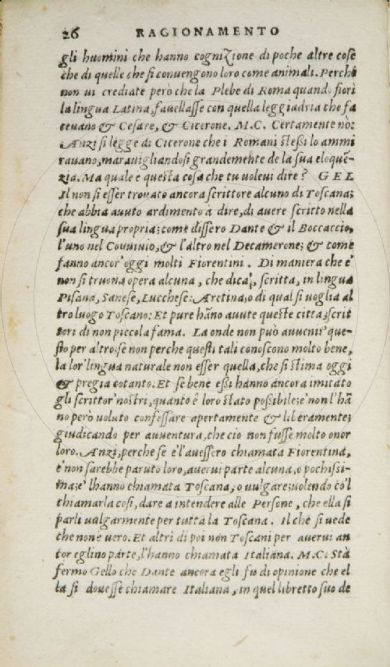 26 RAGIONAMENTO
gli huomini che hanno cognizione di poche altre cose
che di quelle che si convengono loro come animali. Perche
non vi crediate però che la Plebe di Roma quando fiorì
la lingua Latina, favellasse con quella leggiadria che fa
cevano & Cesare, & Cicerone. M.C. Certamente nò:
Anzi si legge di Cicerone che i Romani stessi lo ammi
ravano, maravigliandosi grandemente de la sua eloquē-
zia. Ma quale e questa cosa che tu volevi dire? GEL
Il non si esser trovato ancora scrittore alcuno di Toscana;
che abbia avuto ardimento a dire, di avere scritto nella
sua lingua propria; come dissero Dante & il Boccaccio,
l'uno nel Convivio, & l'altro nel Decamerone; & come
fanno ancor' oggi molti Fiorentini. Di maniera che e'
non si truova opera alcuna, che dica, scritta, in lingua
Pisana, Sanese, Lucchese: Aretina, o di qual si voglia al
tro luogo Toscano: Et pure hāno avute queste citta, scrit
tori di non piccola fama. La onde non può avvenir' que-
sto per altro: se non perche questi tali conoscono molto bene,
la lor' lingua naturale non esser quella, che si stima oggi
& pregia cotanto. Et se bene essi hanno ancora imitato
gli scrittor' nostri, quanto è loro stato possibile: e' non l'hā
no però voluto confessare apertamente & liberamente;
giudicando per avventura, che cio non fusse molto onor
loro. Anzi, perche se e' l'avessero chiamata Fiorentina,
e' non sarebbe paruto loro, avervi parte alcuna, o pochissi-
ma: e' l'hanno chiamata Toscana, o vulgare: volendo cō'l
chiamarla così, dare a intendere alle Persone, che ella si
parli vulgarmente per tutta la Toscana. Il che si vede
che none vero. Et altri di poi non Toscani per avervi an
cor eglino parte, l'hanno chiamata Italiana. M.C. Stà
fermo Gello che Dante ancora egli fu di opinione che el
la si dovesse chiamare Italiana, in quel libretto suo de